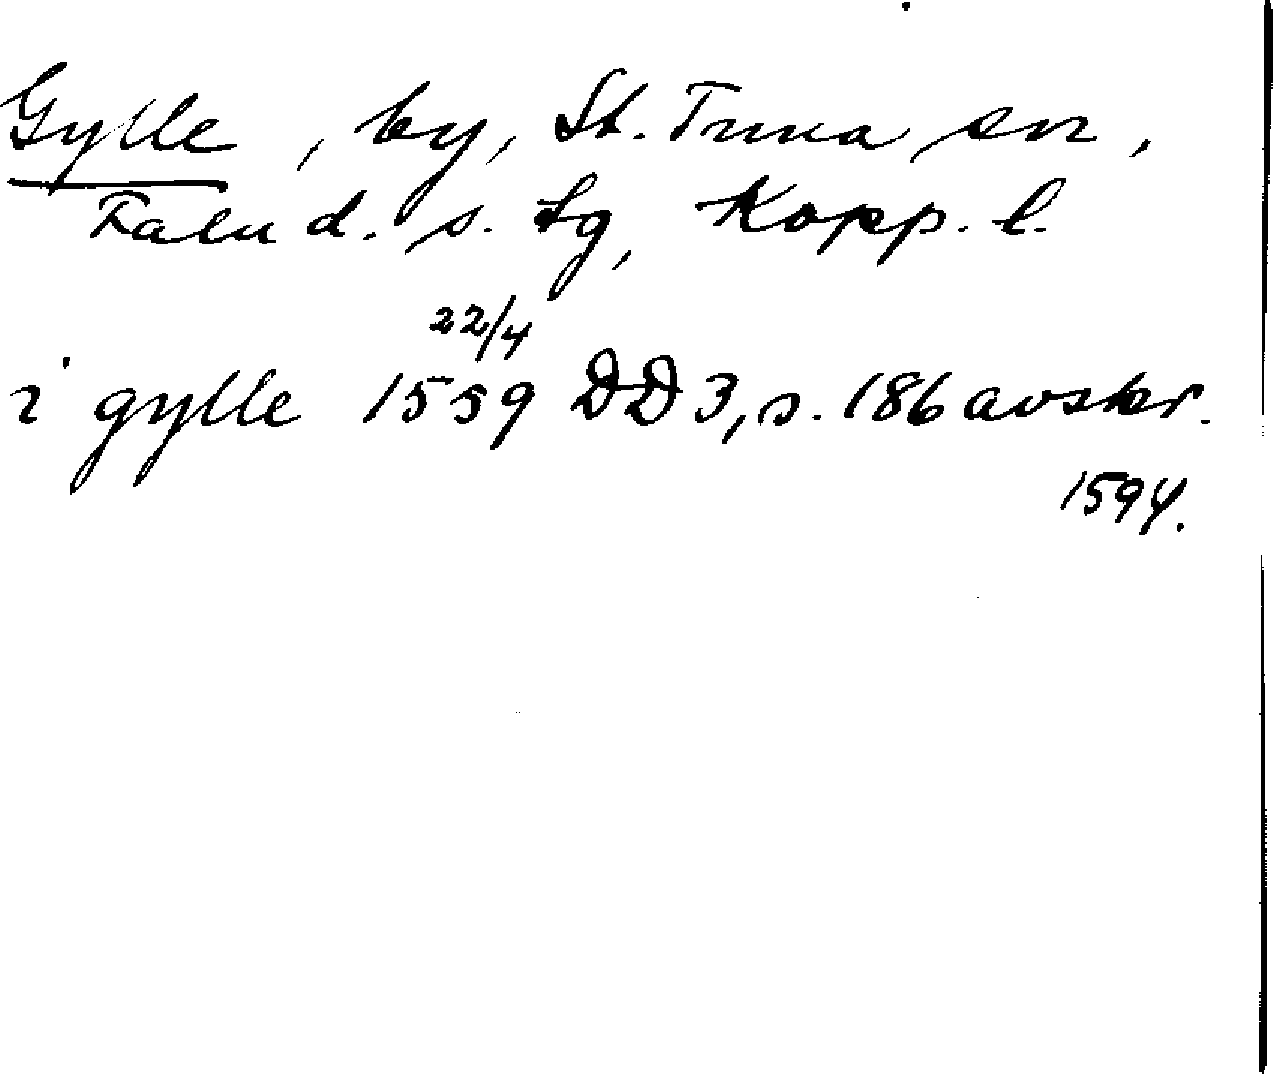 Gylle, by, St. Tuna sn,
Falu d. s. tg, Kopp. l.
i gylle 1559 22/4 DD 3, s. 186 avskr.
1594.